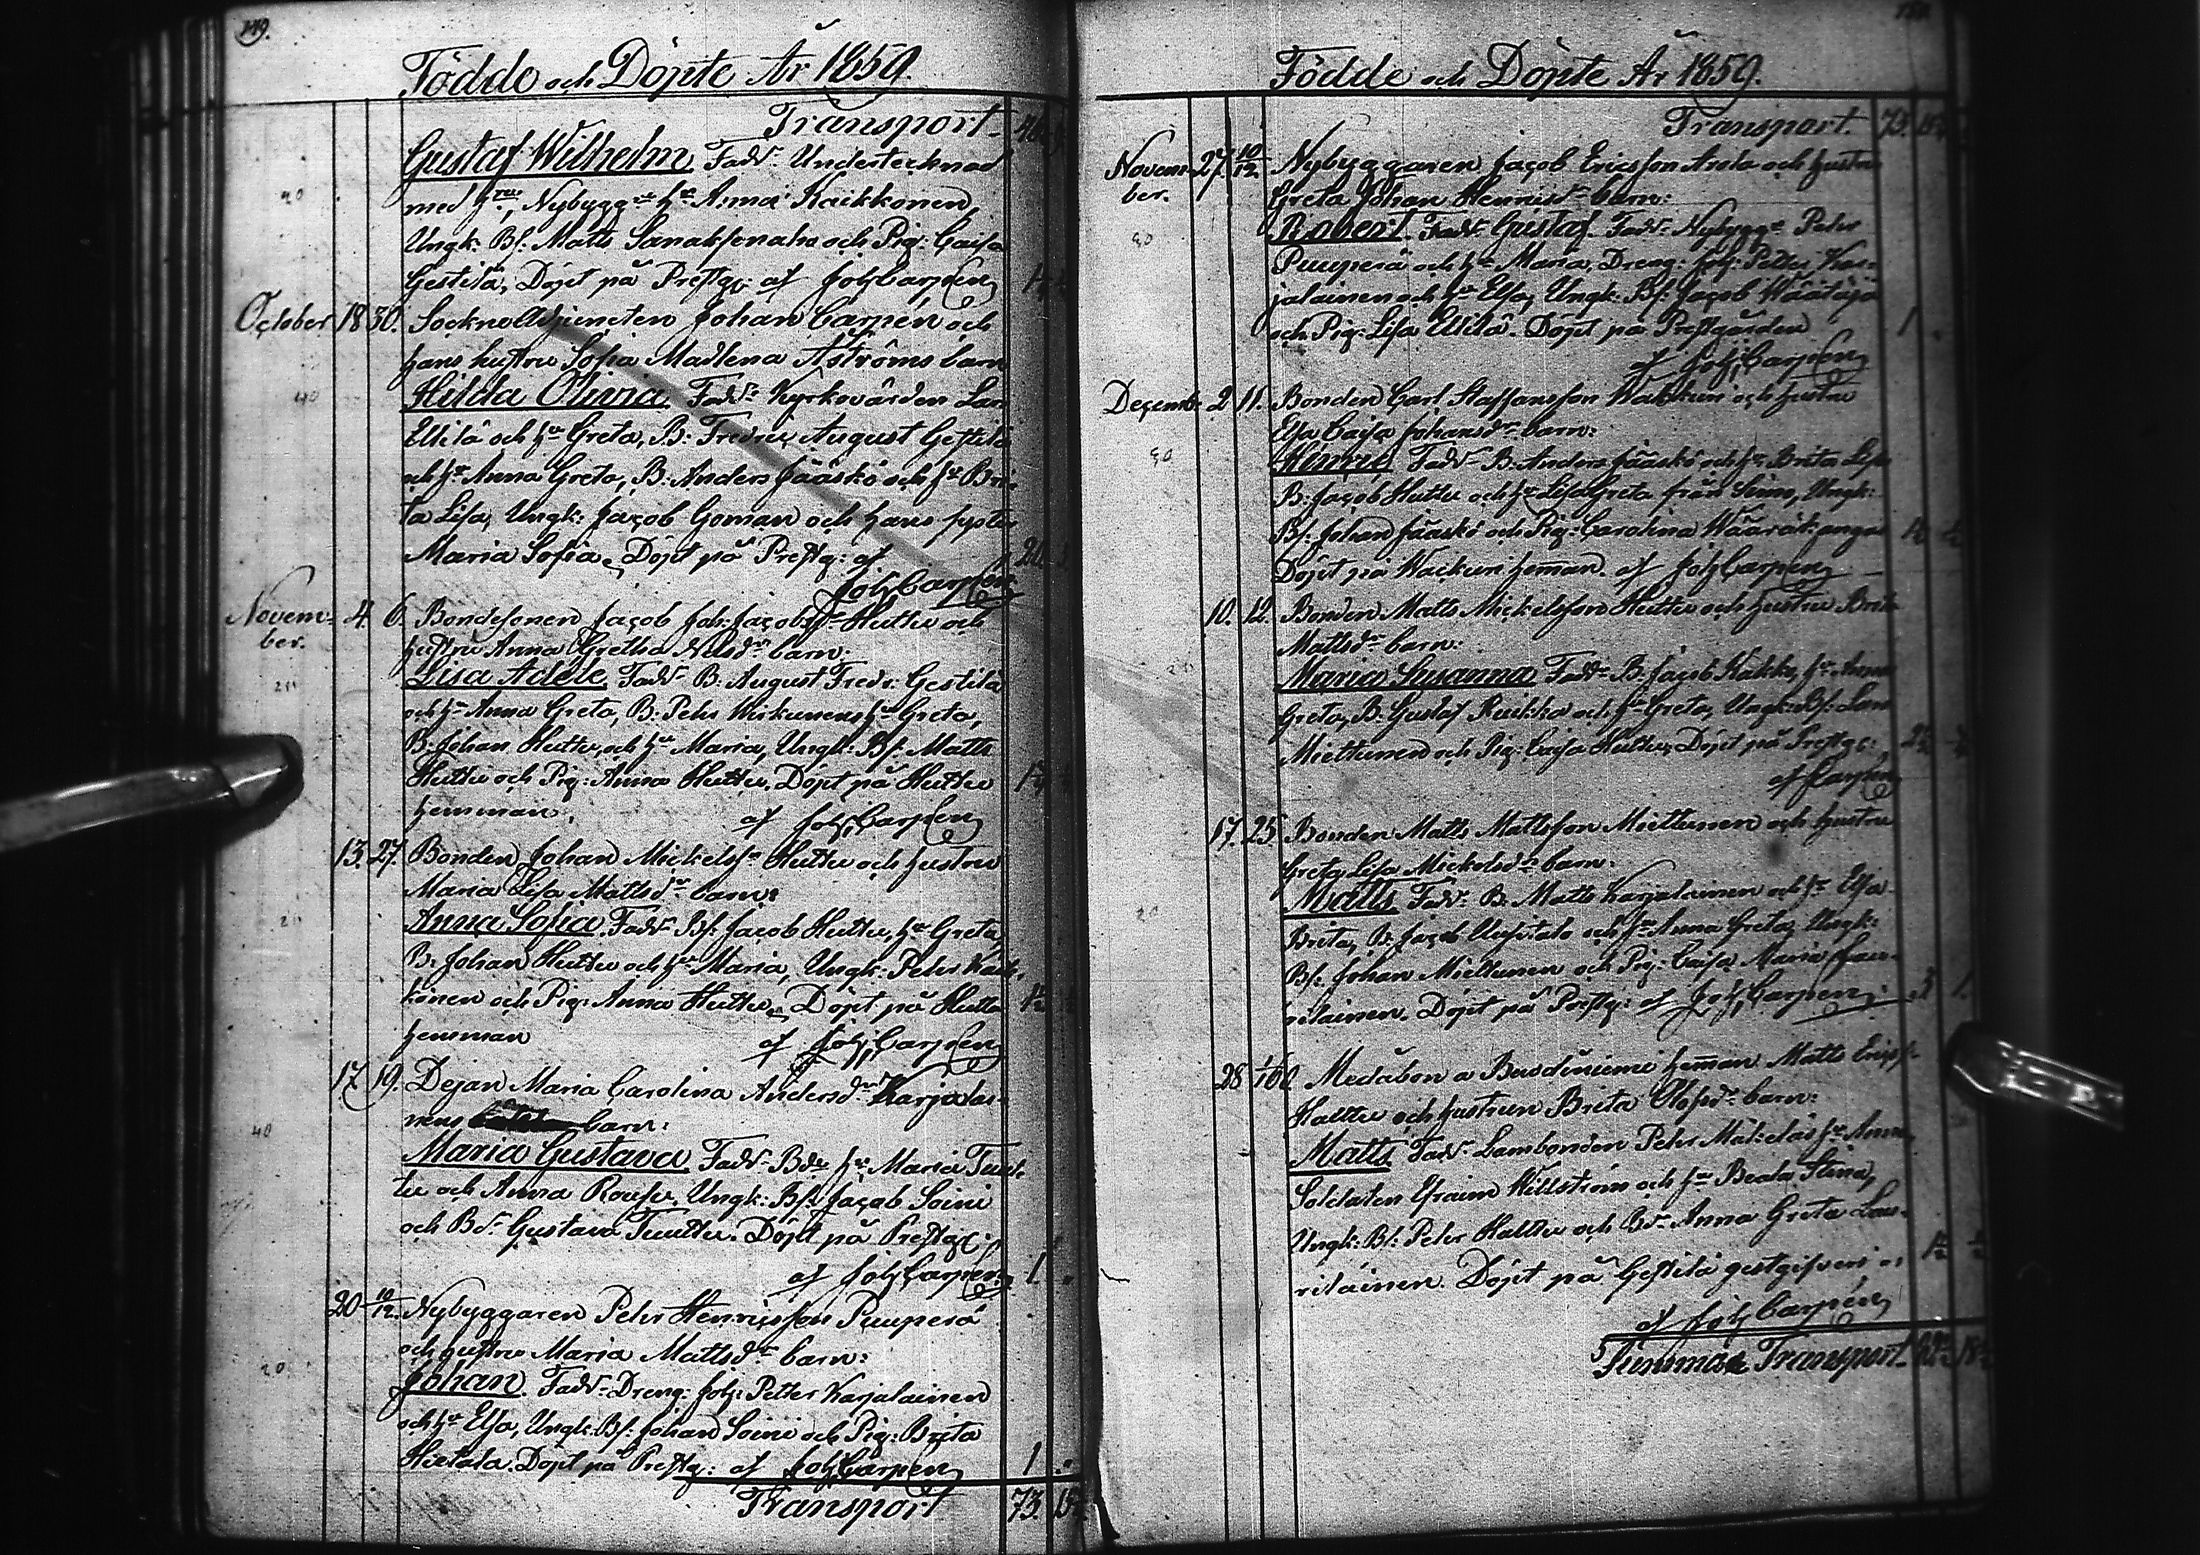 149.
Födde och Döpte År 1859.
Transport
Gustaf Wilhelm Fadd: Undertecknad
med hru, Nybygg hu Anna Kaikkonen
Ungk: Bs: Matts Sanaksenaho och Pig: Caisa
Gestilä, Döpt på Prestg: af Joh Carpén
October 18 30. Sockne Adjuncten Johan Carpén och
hans hustru Sofia Madlena Aströms barn
Hilda Olivia Fadd: Kyrkovärden Lars
Ellilä och hu Greta, B: Fredric August Gestilä
och hu Anna Greta, B: Anders Jääskö och hu Bri-
ta Lisa, Ungk: Jacob Goman och hans syster
Maria Sofia, Döpt på Prestg: af
Joh Carpén
Novem- 4. 6. Bondesonen Jacob Joh: Jacobss Huttu och
ber. hustru Anna Gretha Nilsdr barn:
Lisa Adele Fadd: B. August Fredr: Gestilä
och hu Anna Greta, B: Pehr Kirkunens hu Greta,
B: Johan Huttu, och hu Maria, Ungk: Bs: Matts
Huttu och Pig: Anna Huttu, Döpt på Huttu
hemman, af Joh Carpén
13. 27. Bonden Johan Mickelss Huttu och hustru
Maria Lisa Mattsdr barn:
Anna Sofia. Fadd: Bs: Jacob Huttu, hu Greta,
B: Johan Huttu och hu Maria, Ungk: Pehr Kaik-
konen och Pig: Anna Huttu, Döpt på Huttu
hemman af Joh Carpén
17. 19. Dejan Maria Carolina Andersdr Karjalai-
nens barn:
Maria Gustava Fadd: Bde hu Maria Tuut-
tu och Anna Roufu, Ungk: Bs: Jacob Soini
och Bdr Gustava Tuuttu. Döpt på Prestg:
af Joh Carpén 1.
20 10/12. Nybyggaren Pehr Henricsson Puuperä
och hustru Maria Mattsdr barn:
Johan. Fadd: Dreng: Joh: Petter Karjalainen
och hu Elsa, Ungk: Bs: Johan Soini och Pig: Brita
Hietala. Döpt på Prestg: af Joh Carpén 1
Transport 73.
Födde och Döpte År 1859.
Transport. 73.
Novem- 27. 10/12 Nybyggaren Jacob Ericsson Arola och hustru
ber. Greta Johan Hennisdr barn:
Robert Gustaf. Fadd: Nybygg: Pehr
Puuperä och hu Maria, Dreng: Joh: Petter Kar-
jalainen och hu Elsa, Ungk: Bs: Jacob Wäätäjä
och Pig: Lisa Ellilä. Döpt på Prestgården 1
af Joh Carpén
Decemb: 2 11. Bonden Carl Staffansson Wakkuri och hustru
Elsa Caisa Johansdr barn:
Henric Fadd: B: Anders Jääskö och hu Brita Lisa
B: Jacob Huttu och hu Lisa Greta från Simo, Ungk:
Bs: Johan Jääskö och Pig: Carolina Wäärälkangas
Döpt på Wackuri heman. af Joh Carpén
10. 12. Bonden Matts Mickelsson Huttu och hustru Brita
Mattsdr barn:
Maria Susanna Fadd: B: Jacob Kakko, hu Anna
Greta, B: Gustaf Ruikka och hu Greta, Ungk: Bs: Lars
Miettunen och Pig: Caisa Huttu, Döpt på Prestg:
af Carpén
17. 25. Bonden Matts Mattsson Miettunen och hustru
Greta Lisa Mickelsdr barn:
Matts Fadd: B. Matts Karjalainen och hu Elsa
Brita, B: Jacob Uusitalo och hu Anna Greta, Ungk:
Bs: Johan Miettunen och Pig: Caisa Maria Lau-
rilainen. Döpt på Prestg: af Joh Carpén. 3 1.
28 1/1 60 Medåbon a Buodiniemi heman Matts Ericss
Halttu och hustrun Brita Olofsdr barn:
Matts Fadd: Lambonden Pehr Mäkeläs hu Anna,
Soldaten Efraim Hillström och hu Beata Stina,
Ungk: Bs: Pehr Halttu och Bdr Anna Greta Lau-
rilainen. Döpt på Gestilä gestgifveri
af Joh Carpén
Summa Transport